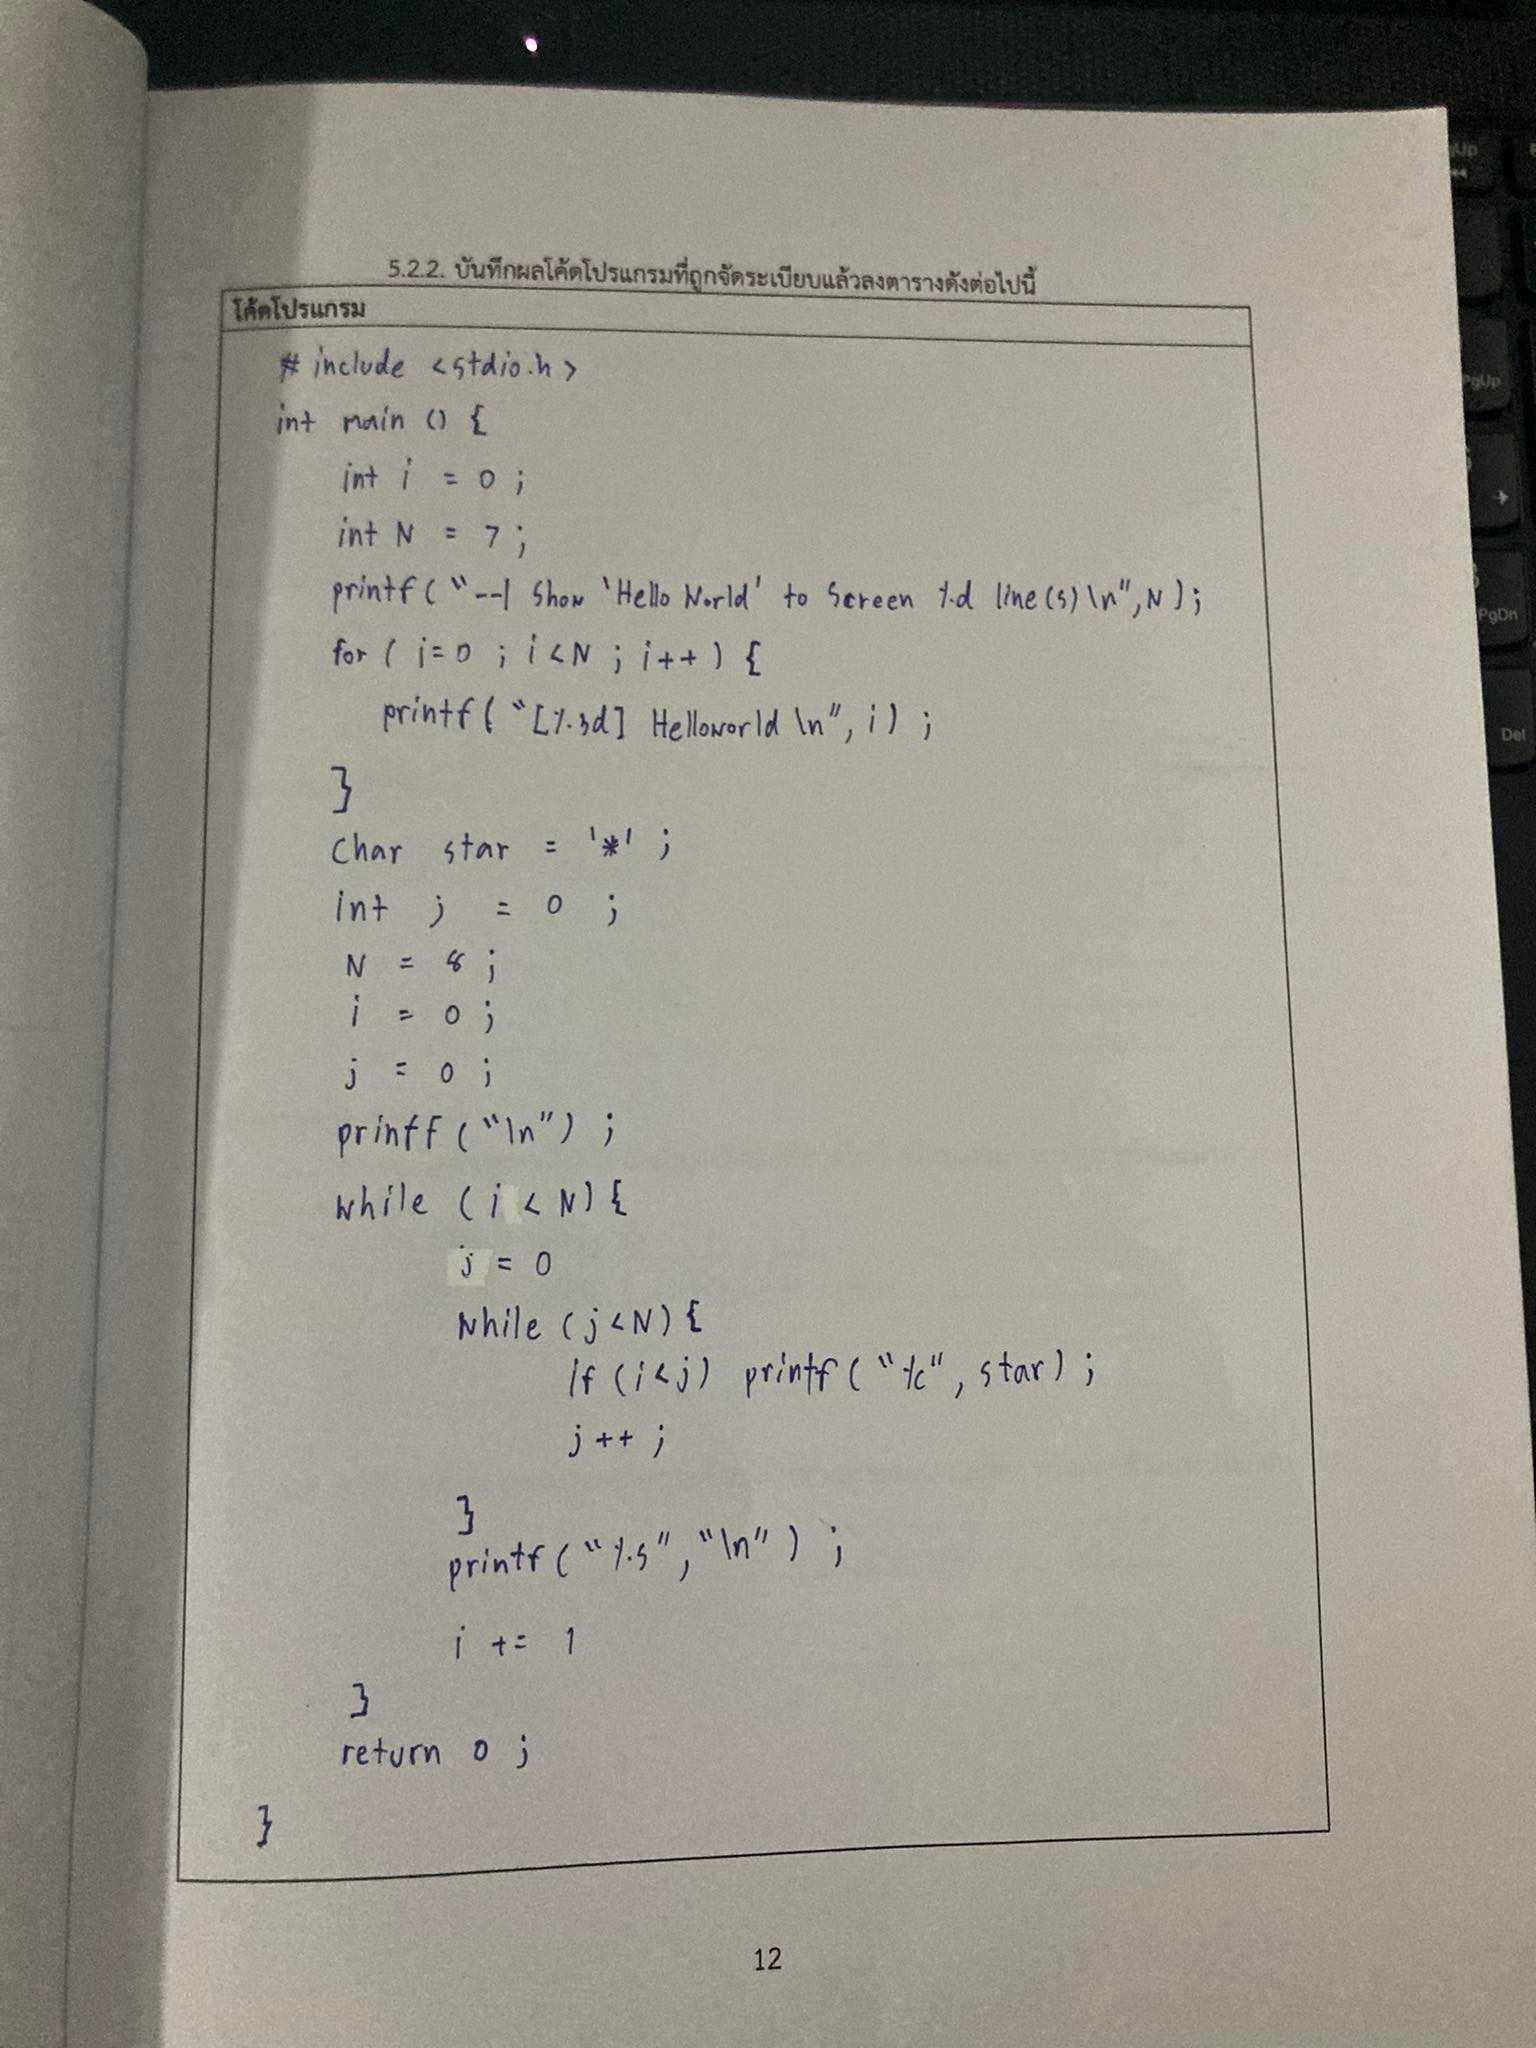 5.2.2. บันทึกผลโค้ดโปรแกรมที่ถูกจัดระเบียบแล้วลงตารางดังต่อไปนี้
โค้ดโปรแกรม
# include <stdio.h>
int main () {
int i = 0 ;
int N = 7 ;
printf ( "--| Show 'Hello World' to Screen %d line(s) \n", N ) ;
for ( i=0 ; i<N ; i++ ) {
printf ( "[%3d] Helloworld \n", i ) ;
}
Char star = '*' ;
int j = 0 ;
N = 8 ;
i = 0 ;
j = 0 ;
printf ( "\n" ) ;
while ( i < N ) {
j = 0
While ( j < N ) {
If ( i < j ) printf ( "%c", star ) ;
j ++ ;
}
printf ( "%s", "\n" ) ;
i += 1
}
return 0 ;
}
12
PgUp
PgDn
Del